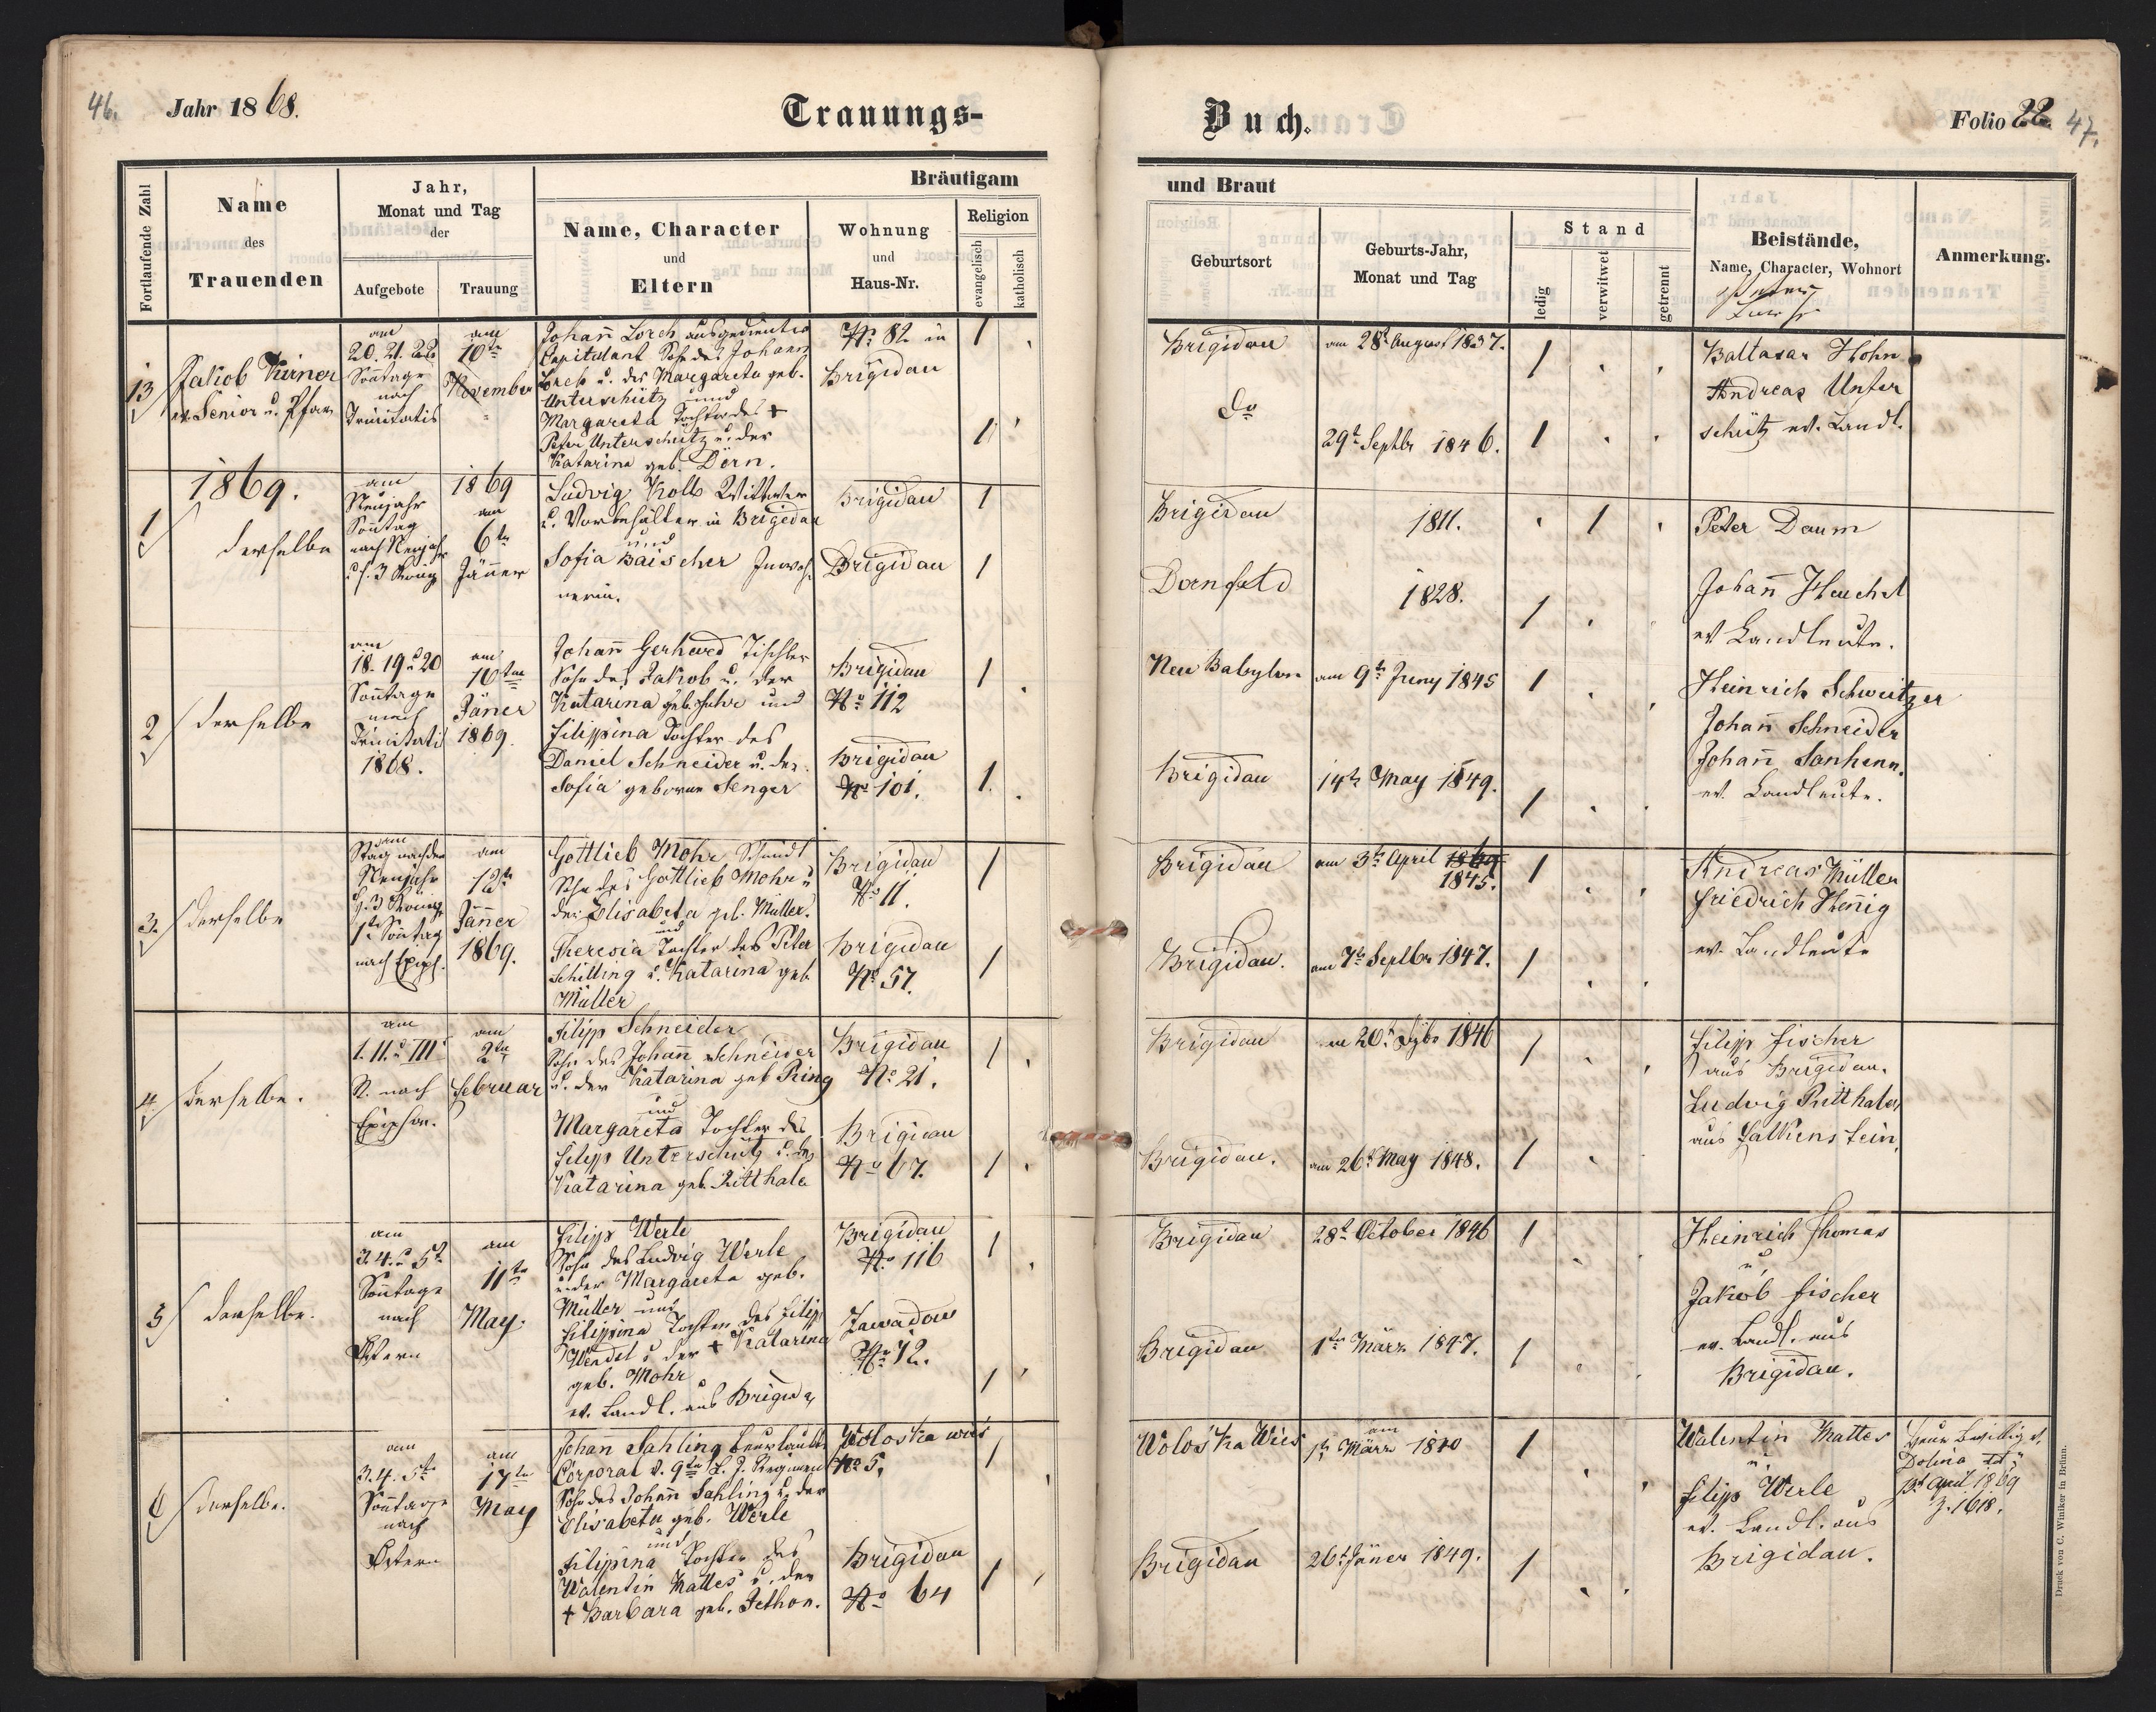 46.
Jahr 1868.
Trauungs-
Buch.
Folio 22
47.
Fortlaufende Zahl
Name
des
Trauenden
Jahr,
Monat und Tag
der
Aufgebote
Trauung
Bräutigam
Name, Character
und
Eltern
Wohnung
und
Haus-Nr.
Religion
evangelisch
katholisch
und Braut
Geburtsort
Geburts-Jahr,
Monat und Tag
Stand
ledig
verwitwet
getrennt
Beistände,
Name, Character, Wohnort
Anmerkung.
13
Jakob Kürner
ev. Senior u. Pfarr
am
20. 21. 22
Soñtage
nach
Trinitatis
am
10te
November
Johañ Lorch ausgedienter
Capitulant Sohn des Johañ
Lorch u. der Margareta geb.
Unterschütz und
Margareta Tochter des +
Peter Unterschütz u. der
Katarina geb. Dörn.
No 82 in
Brigidau
1
1
Brigidau
do
am 28t August 1837.
29t Septbr 1846.
1
1
Baltasar Hohn
Andreas Unter
schütz ev. Landl.
1869.
1
derselbe
am
Neujahr
Soñtag
nach Neujahr
u. h. 3 König
1869
am
6te
Jäñer
Ludvig Kolb Wittwer
u. Vorbehälter in Brigidau
und
Sofia Baischer Inwoh
nerin.
Brigidau
Brigidau
1
1
Brigidau
Dornfeld
1811.
1828.
1
1
Peter Daum
Johañ Heuchel
ev Landleute.
2
derselbe
am
18. 19 u 20
Soñtage
nach
Trinitatis
1868.
am
10ten
Jäner
1869.
Johañ Gerhard Tischler
Sohn des Jakob u. der
Katarina geb. Fuhr und
Filippina Tochter des
Daniel Schneider u. der
Sofia geborne Senger
Brigidau
No 112
Brigidau
No 101.
1
1.
Neu Babylon
Brigidau
am 9te Juny 1845
14te May 1849.
1
1
Heinrich Schweitzer
Johañ Schneider
Johañ Sanhenn.
ev. Landleute.
3.
derselbe
am
Stag nach dem
Neujahr
h. 3 König
1te Soñtag
nach Epiph.
am
12te
Jäner
1869.
Gottlieb Mohr Schmidt
Sohn des Gottlieb Mohr u
der Elisabeta geb. Müller.
und
Theresia Tochter des Peter
Schilling u. Katarina geb
Müller
Brigidau
No 11.
Brigidau
No 57.
1
1
Brigidau
Brigidau.
am 3te April 1869
1845.
am 7te Septbr 1847.
1
1
Andreas Müller
Friedrich Heñig
ev. Landleute
4.
derselbe.
am
I. II. u III
S. nach
Epiphan.
am
2te
Februar
Filipp Schneider
Sohn des Johañ Schneider
u. der Katarina geb Ring
und
Margareta Tochter des
Filipp Unterschütz u. der
Katarina geb. Ritthale
Brigidau
No 21.
Brigidau
No 67.
1
1
Brigidau
Brigidau.
am 20t 1846
am 26t May 1848.
1
1
Filipp Fischer
aus Brigidau.
Ludvig Ritthaler
aus Falkenstein.
5
derselbe.
am
3. 4. u 5t
Soñtage
nach
Ostern
am
11te
May.
Filipp Werle
Sohn des Ludvig Werle
u. der Margareta geb.
Müller und
Filippina Tochter des Filipp
Wendel u der + Katarina
geb. Mohr
ev. Landl. aus Brigida
Brigidau
No 116
Zawadow
No 12.
1
1
Brigidau
Brigidau
28t October 1846
1te März 1847.
1
1
Heinrich Thomas
u.
Jakob Fischer
ev. Landl. aus
Brigidau.
6
derselbe.
am
3. 4. 5te
Soñtage
nach
Ostern
am
17te
May
Johañ Sahling beurlaubt
Corporal d. 9te L. J. Regiment
Sohn des Johañ Sahling u. der
Elisabeta geb. Werle
und
Filippina Tochter des
Walentin Mattes u. der
+ Barbara geb. Jethon.
Woloska wies
No 5.
Brigidau
No 64
1
1
Woloska Wies
Brigidau
am
1te März 1840
26t Jäner 1849.
1
1
Walentin Mattes
u.
Filipp Werle
ev. Landl. aus
Brigidau.
Bewillig d.
Dolina
April 1869
Z. 1618.
Druck von C. Winiker in Brünn.